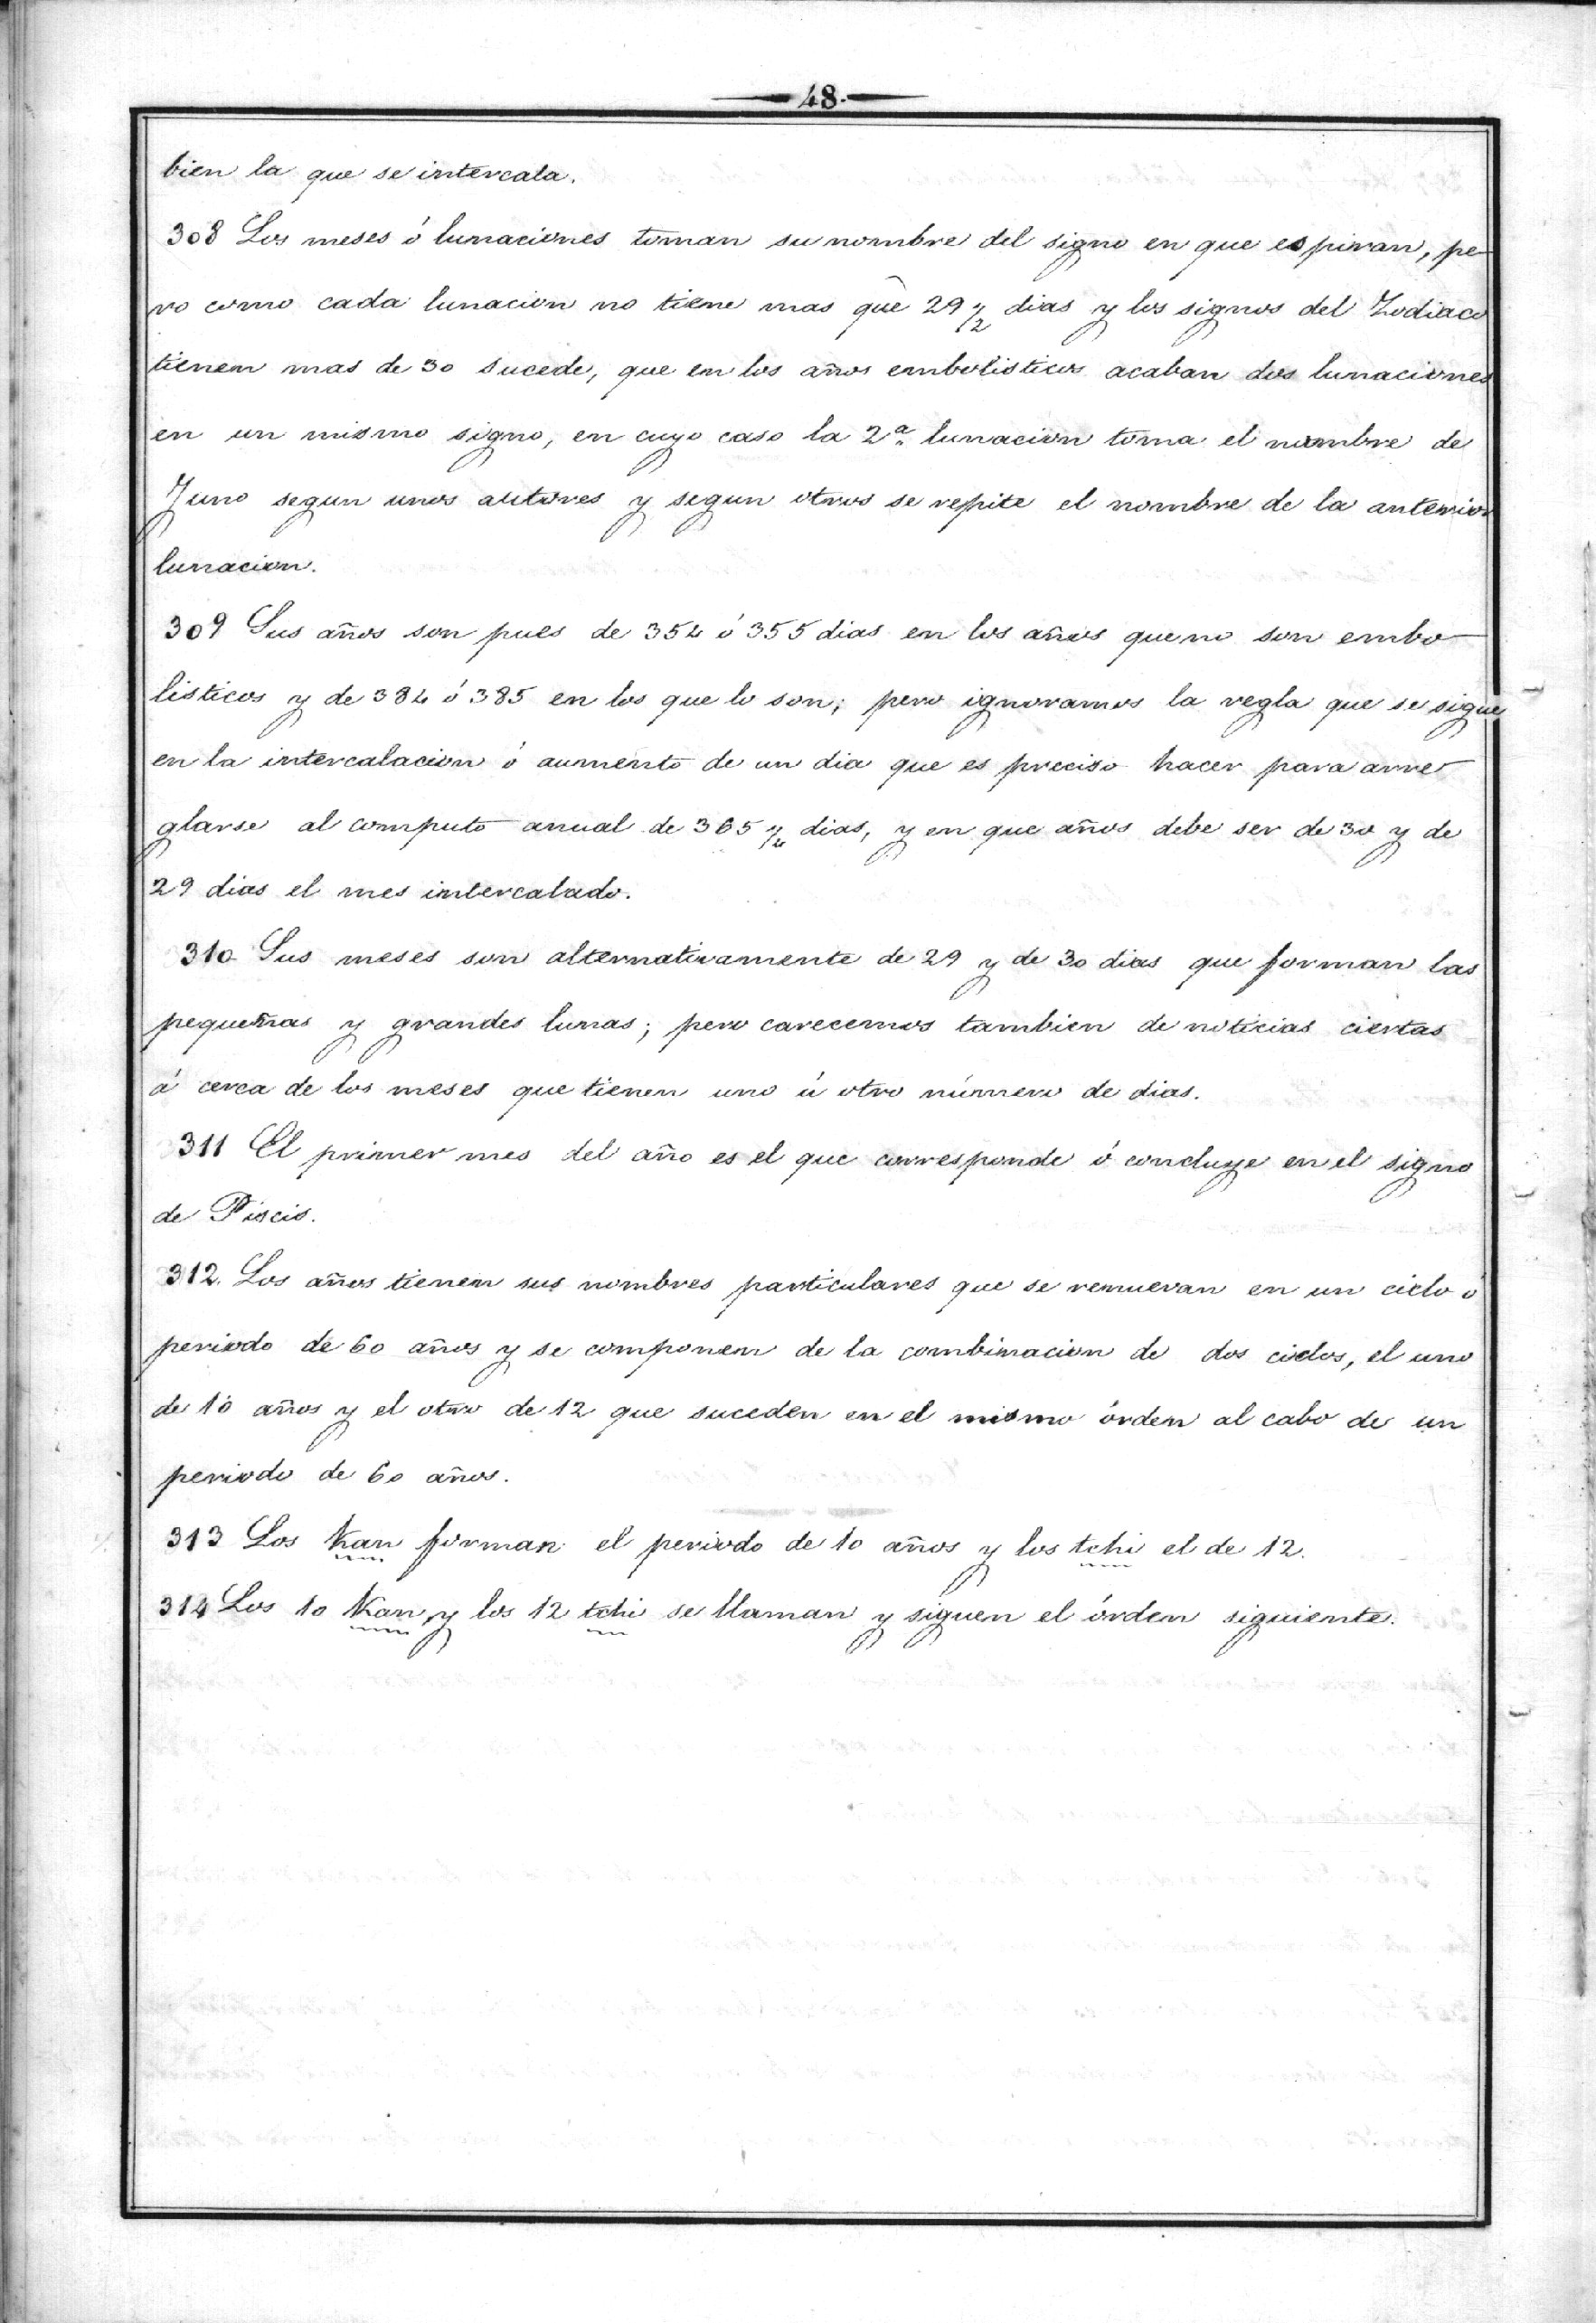 48.
bien la que se intercala.
308 Los meses ó lunaciones toman su nombre del signo en que espiran, pe-
ro como cada lunacion no tiene mas que 29 1/2 dias y los signos del Zodiaco
tienen mas de 30 sucede, que en los años embolisticos acaban dos lunaciones
en un mismo signo, en cuyo caso la 2ª lunacion toma el nombre de
Juno segun unos autores y segun otros se repite el nombre de la anterior
lunacion.
309 Sus años son pues de 354 ó 355 dias en los años que no son embo-
listicos y de 384 ó 385 en los que lo son; pero ignoramos la regla que se sigue
en la intercalacion ó aumento de un dia que es preciso hacer para arre-
glarse al computo anual de 365 1/4 dias, y en que años debe ser de 30 y de
29 dias el mes intercalado.
310 Sus meses son alternativamente de 29 y de 30 dias que forman las
pequeñas y grandes lunas; pero carecemos tambien de noticias ciertas
á cerca de los meses que tienen uno ú otro número de dias.
311 El primer mes del año es el que corresponde ó concluye en el signo
de Piscis.
312. Los años tienen sus nombres particulares que se renuevan en un ciclo ó
periodo de 60 años y se componen de la combinacion de dos ciclos, el uno
de 10 años y el otro de 12 que suceden en el mismo órden al cabo de un
periodo de 60 años.
313 Los Kan forman el periodo de 10 años y los tchi el de 12.
314 Los 10 Kan y los 12 tchi se llaman y siguen el órden siguiente.